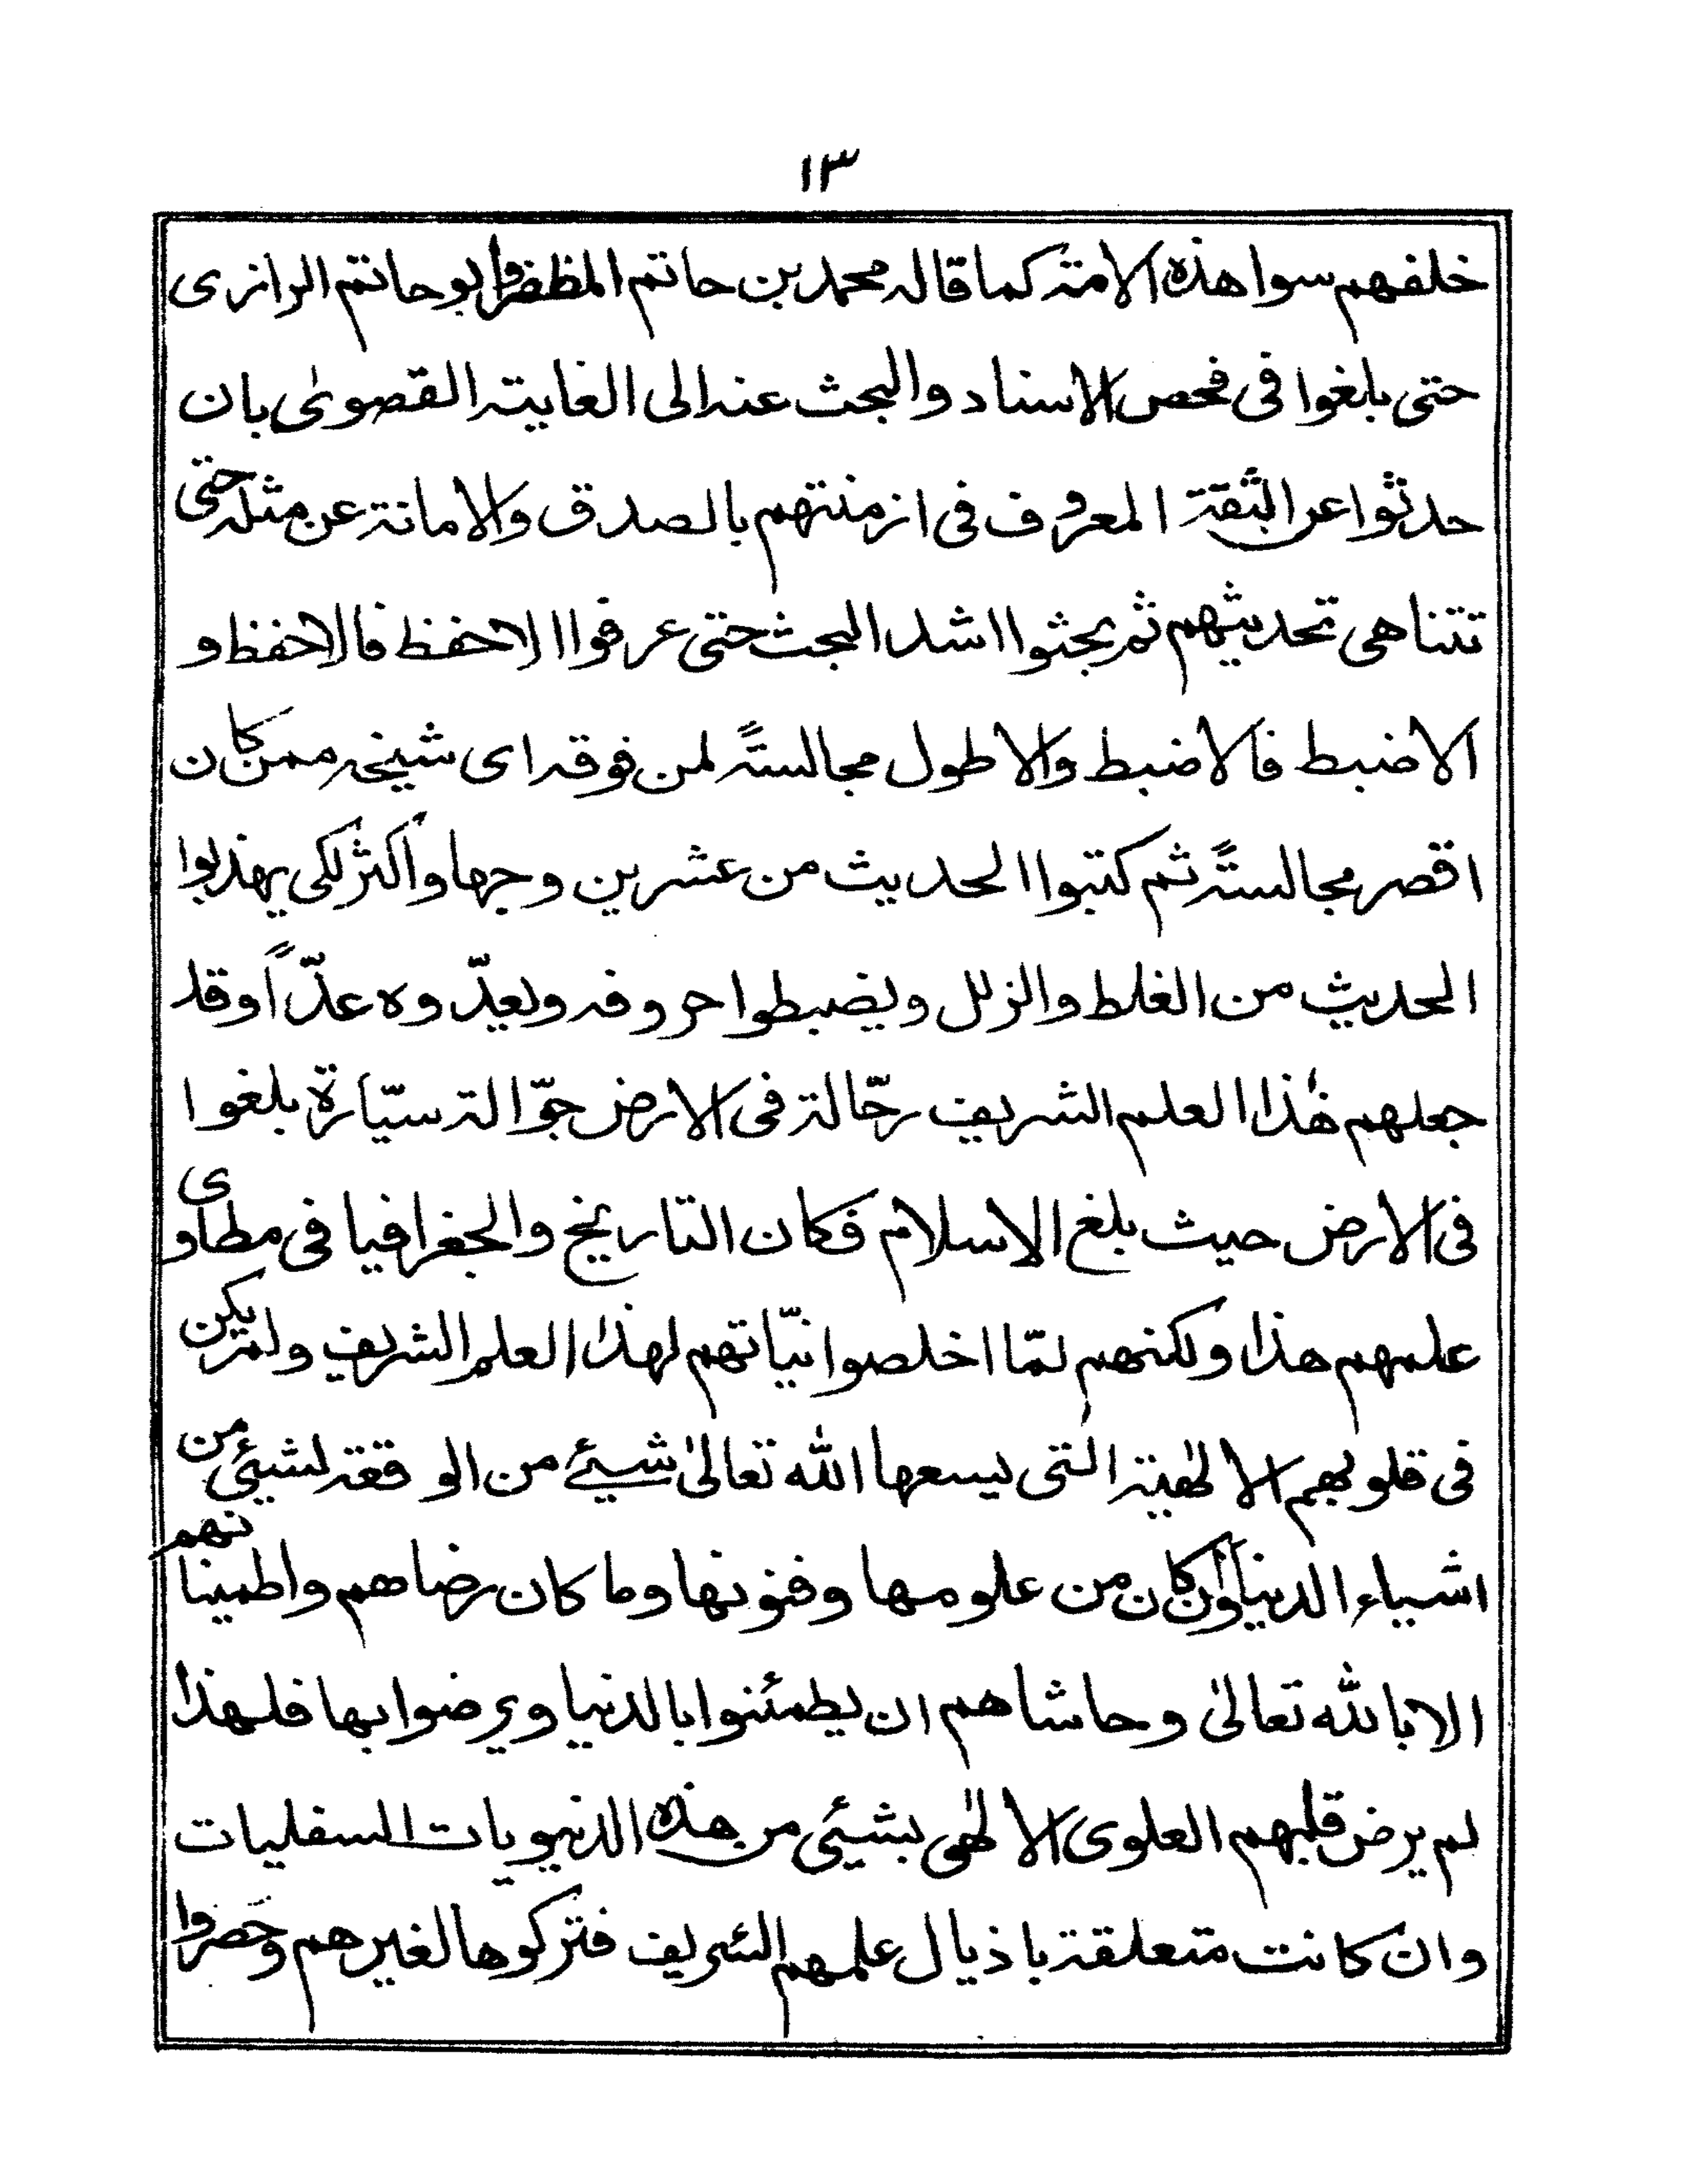 ١٣
خلفهم سوا هذه الامة كما قاله محمد بن حاتم المظفر وابو حاتم الرازى
حتى بلغوا فى فحص الاسناد والبحث عنه الى الغاية القصوىٰ بان
حدثوا عن الثقة المعروف فى ازمنتهم بالصدق والامانة عن مثله حتى
تتناهى تحديثهم ثم بحثوا اشد البحث حتى عرفوا الاحفظ فالاحفظ و
الاضبط فالاضبط والاطول مجالسةً لمن فوقه اى شيخه ممن كان
اقصر مجالسةً ثم كتبوا الحديث من عشرين وجها واكثر لكى يهذبوا
الحديث من الغلط والزلل ويضبطوا حروفه ويعدّوه عدّاً وقد
جعلهم هٰذا العلم الشريف رحّالة فى الارض جوّالة سيّارة بلغوا
فى الارض حيث بلغ الاسلام فكان التاريخ والجغرافيا فى مطاوى
علمهم هذا ولكنهم لمّا اخلصوا نيّاتهم لهذا العلم الشريف ولم يكن
فى قلوبهم الالٰهية التى يسعها الله تعالىٰ شيئ من الوقعة لشيئ من
اشياء الدنيا وان كان من علومها وفنونها وما كان رضاهم واطمينانهم
الا بالله تعالىٰ وحاشاهم ان يطمئنوا بالدنيا ويرضوا بها فلهذا
لم يرض قلبهم العلوى الالٰهى بشيئ من هذه الدنيويات السفليات
وان كانت متعلقة باذيال علمهم الشريف فتركوها لغيرهم وحصروا